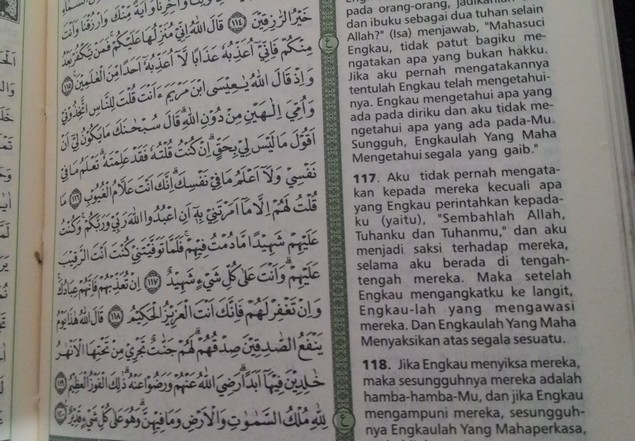 خَيْرُ الرّٰزِقِيْنَ ١١٤ قَالَ اللّٰهُ اِنِّيْ مُنَزِّلُهَا عَلَيْكُمْ فَمَنْ يَّكْفُرْ بَعْدُ
مِنْكُمْ فَاِنِّيْٓ اُعَذِّبُهٗ عَذَابًا لَّآ اُعَذِّبُهٗٓ اَحَدًا مِّنَ الْعٰلَمِيْنَ ١١٥
وَاِذْ قَالَ اللّٰهُ يٰعِيْسَى ابْنَ مَرْيَمَ ءَاَنْتَ قُلْتَ لِلنَّاسِ اتَّخِذُوْنِيْ
وَاُمِّيَ اِلٰهَيْنِ مِنْ دُوْنِ اللّٰهِ ۗقَالَ سُبْحٰنَكَ مَا يَكُوْنُ لِيْٓ اَنْ
اَقُوْلَ مَا لَيْسَ لِيْ بِحَقٍّ ۗاِنْ كُنْتُ قُلْتُهٗ فَقَدْ عَلِمْتَهٗ ۗتَعْلَمُ مَا فِيْ
نَفْسِيْ وَلَآ اَعْلَمُ مَا فِيْ نَفْسِكَ ۗاِنَّكَ اَنْتَ عَلَّامُ الْغُيُوْبِ ١١٦ مَا
قُلْتُ لَهُمْ اِلَّا مَآ اَمَرْتَنِيْ بِهٖٓ اَنِ اعْبُدُوا اللّٰهَ رَبِّيْ وَرَبَّكُمْ ۚوَكُنْتُ
عَلَيْهِمْ شَهِيْدًا مَّا دُمْتُ فِيْهِمْ ۚفَلَمَّا تَوَفَّيْتَنِيْ كُنْتَ اَنْتَ الرَّقِيْبَ
عَلَيْهِمْ ۗوَاَنْتَ عَلٰى كُلِّ شَيْءٍ شَهِيْدٌ ١١٧ اِنْ تُعَذِّبْهُمْ فَاِنَّهُمْ عِبَادُكَ ۚ
وَاِنْ تَغْفِرْ لَهُمْ فَاِنَّكَ اَنْتَ الْعَزِيْزُ الْحَكِيْمُ ١١٨ قَالَ اللّٰهُ هٰذَا يَوْمُ
يَنْفَعُ الصّٰدِقِيْنَ صِدْقُهُمْ ۗلَهُمْ جَنّٰتٌ تَجْرِيْ مِنْ تَحْتِهَا الْاَنْهٰرُ
خٰلِدِيْنَ فِيْهَآ اَبَدًا ۗرَضِيَ اللّٰهُ عَنْهُمْ وَرَضُوْا عَنْهُ ۗذٰلِكَ الْفَوْزُ الْعَظِيْمُ ١١٩
لِلّٰهِ مُلْكُ السَّمٰوٰتِ وَالْاَرْضِ وَمَا فِيْهِنَّ ۗوَهُوَ عَلٰى كُلِّ شَيْءٍ قَدِيْرٌ ١٢٠
pada orang-orang, jadikanlah
dan ibuku sebagai dua tuhan selain
Allah?" (Isa) menjawab, "Mahasuci
Engkau, tidak patut bagiku me-
ngatakan apa yang bukan hakku.
Jika aku pernah mengatakannya
tentulah Engkau telah mengetahui-
nya. Engkau mengetahui apa yang
ada pada diriku dan aku tidak me-
ngetahui apa yang ada pada-Mu.
Sungguh, Engkaulah Yang Maha
Mengetahui segala yang gaib."
117. Aku tidak pernah mengata-
kan kepada mereka kecuali apa
yang Engkau perintahkan kepada-
ku (yaitu), "Sembahlah Allah,
Tuhanku dan Tuhanmu," dan aku
menjadi saksi terhadap mereka,
selama aku berada di tengah-
tengah mereka. Maka setelah
Engkau mengangkatku ke langit,
Engkau-lah yang mengawasi
mereka. Dan Engkaulah Yang Maha
Menyaksikan atas segala sesuatu.
118. Jika Engkau menyiksa mereka,
maka sesungguhnya mereka adalah
hamba-hamba-Mu, dan jika Engkau
mengampuni mereka, sesungguh-
nya Engkau Yang Mahaperkasa,